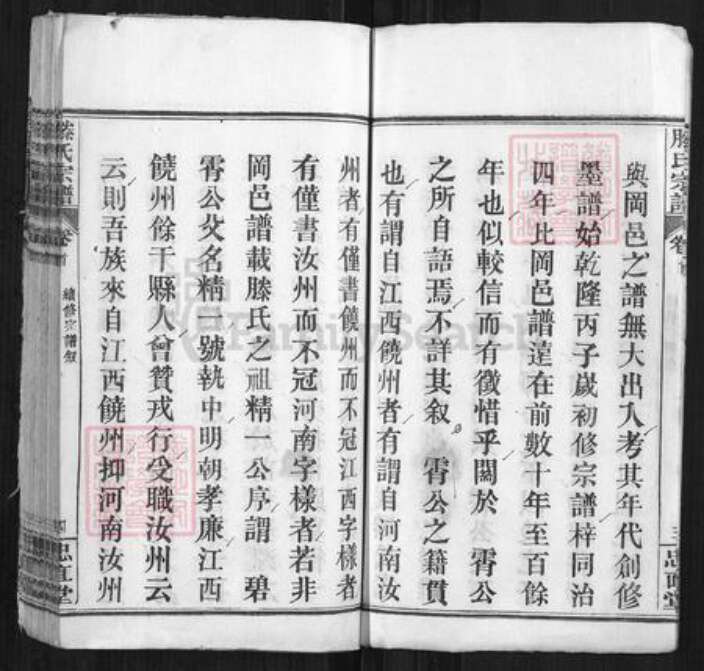 滕氏宗譜
卷首
三
忠直堂
與岡邑之譜無大出入考其年代創修
墨譜始乾隆丙子歲初修宗譜梓同治
四年比岡邑譜遠在前數十年至百餘
年也似較信而有徵惜乎關於 霄公
之所自語焉不詳其叙 霄公之籍貫
也有謂自江西饒州者有謂自河南汝
州者有僅書饒州而不冠江西字樣者
有僅書汝州而不冠河南字樣者若非
岡邑譜載滕氏之祖精一公序謂 碧
霄公父名精一號執中明朝孝廉江西
饒州餘干縣人曾贊戎行受職汝州云
云則吾族來自江西饒州抑河南汝州
滕氏宗譜
卷首
續修宗譜叙
四
忠直堂
FamilySearch